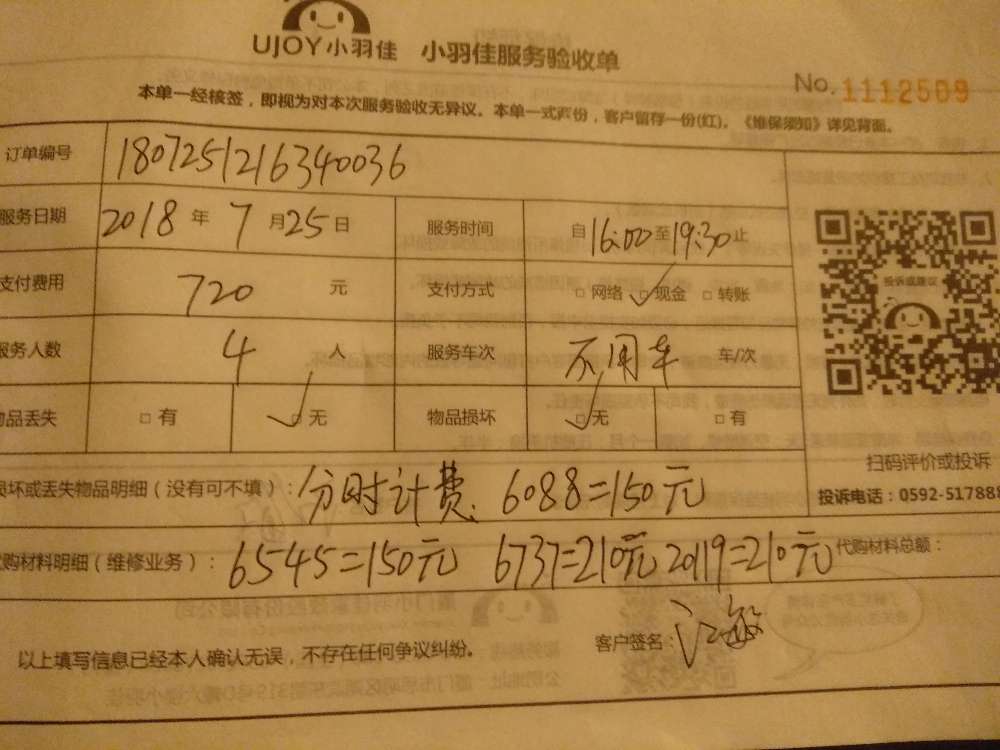 UJOY小羽佳 小羽佳服务验收单
No. 1112509
本单一经核签，即视为对本次服务验收无异议。本单一式两份，客户留存一份(红)。《维保须知》详见背面。
订单编号 1807251216340036
服务日期 2018 年 7 月 25 日 服务时间 自 16:00 至 19:30 止
支付费用 720 元 支付方式 □ 网络 ☑ 现金 □ 转账
投诉或建议
服务人数 4 人 服务车次 不用车 车/次
物品丢失 □ 有 ☑ 无 物品损坏 ☑ 无 □ 有
扫码评价或投诉
损坏或丢失物品明细（没有可不填）： 分时计费. 6088=150元
投诉电话：0592-517888
代购材料明细（维修业务）： 6545=150元 6737=210元 20119=210元 代购材料总额：
以上填写信息已经本人确认无误，不存在任何争议纠纷。 客户签名： 江敏